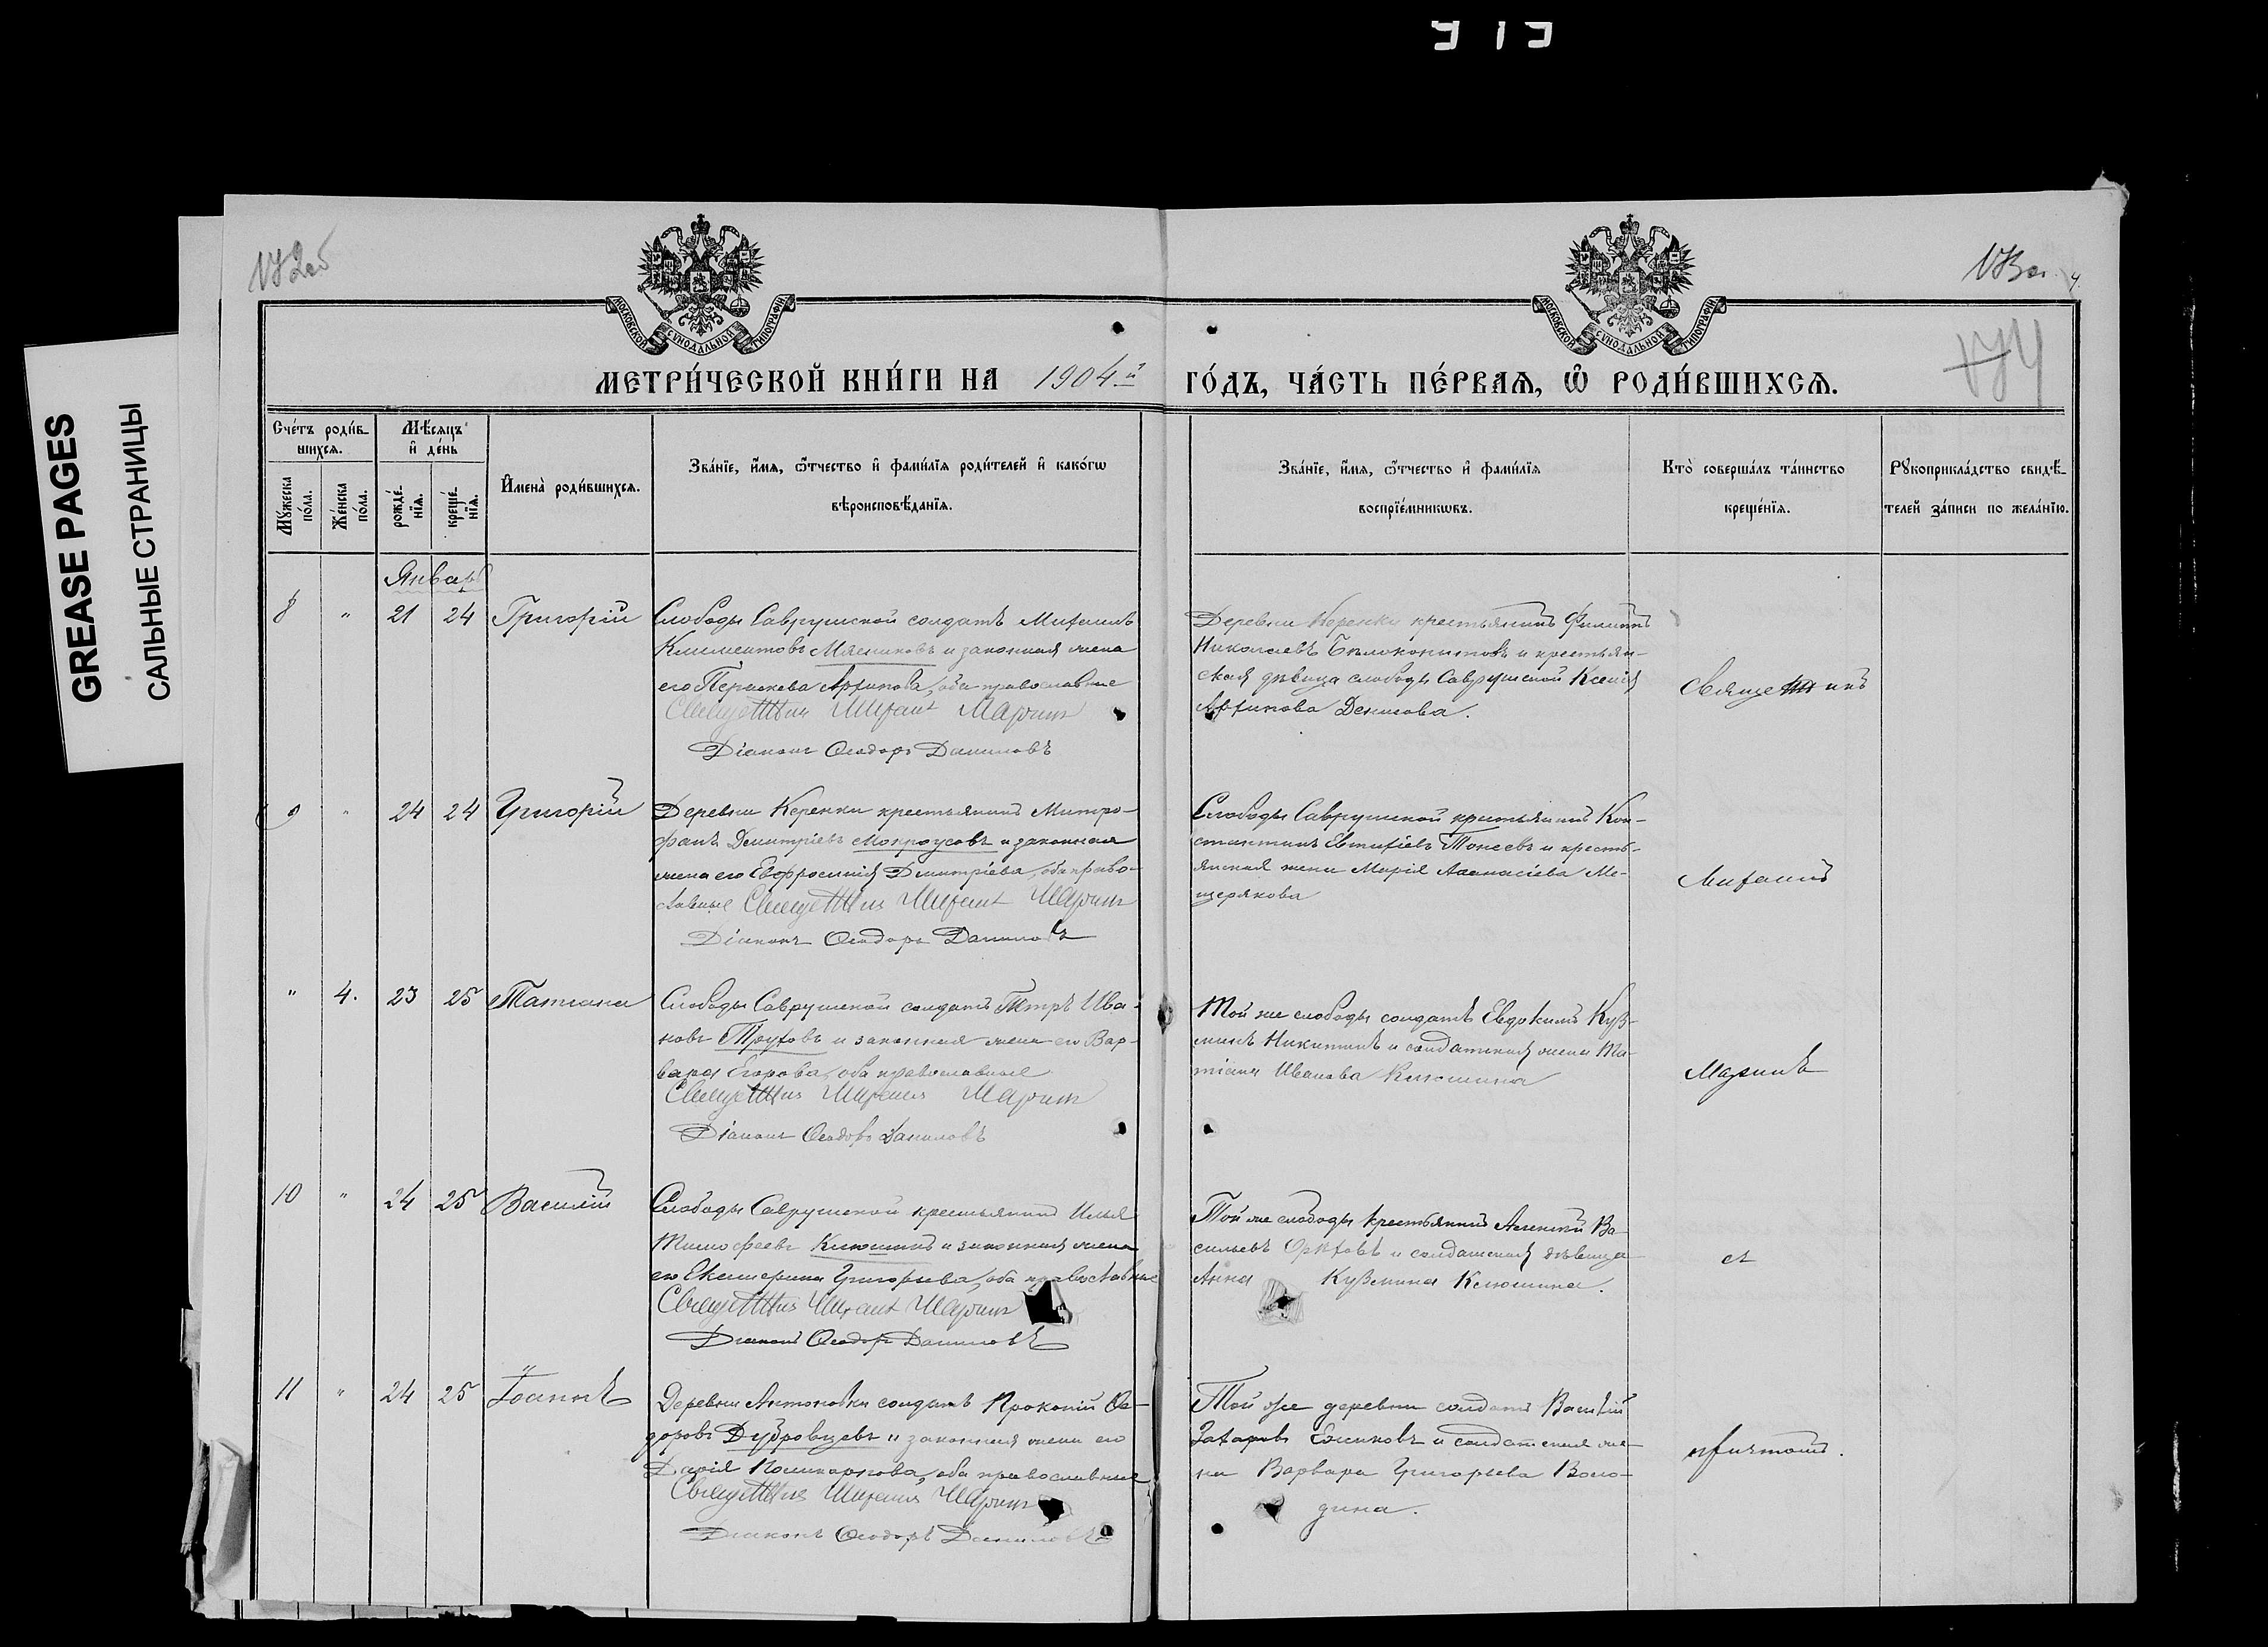 GREASE PAGES
САЛЬНЫЕ СТРАНИЦЫ
МОСКОВСКОЙ СУНОДАЛЬНОЙ ТИПОГРАФІИ
МОСКОВСКОЙ СУНОДАЛЬНОЙ ТИПОГРАФІИ
МЕТРИ́ЧЕСКОЙ КНИ́ГИ НА 1904й ГО́ДЪ, ЧА́СТЬ ПЕ́РВАѦ, Ѿ РОДИ́ВШИХСѦ.
Сче́тъ роди́в-
шихсѧ.
Мꙋ́жеска
по́ла.
Же́нска
по́ла.
Мѣ́сѧцъ
и҆ де́нь
рожде́-
нїѧ.
креще́-
нїѧ.
И҆мена̀ роди́вшихсѧ.
Зва́нїе, и҆́мѧ, ѻ҆́тчество и҆ фами́лїѧ роди́телей и҆ како́гѡ
вѣроисповѣ́данїѧ.
Зва́нїе, и҆́мѧ, ѻ҆́тчество и҆ фами́лїѧ
воспрїе́мникѡвъ.
Кто̀ соверша́лъ та́инство
креще́нїѧ.
Рꙋкоприкла́дство свидѣ́-
телей за́писи по жела́нїю.
Январь
8 " 21 24 Григорій
Слободы Саврушской солдатъ Митрофанъ
Климентовъ Мясниковъ и законная жена
его Параскева Архипова, оба православные
Діаконъ Ѳеодоръ Даниловъ
Деревни Керенки крестьянинъ Филиппъ
Николаевъ Бѣлокопытовъ и крестьян-
ская дѣвица слободы Саврушской Ксенія
Архипова Денисова.
Священникъ
9 " 24 24 Григорій
Деревни Керенки крестьянинъ Митро-
фанъ Димитріевъ Мокроусовъ и законная
жена его Евфросинія Димитріева, оба право-
славные
Діаконъ Ѳеодоръ Даниловъ
Слободы Саврушской крестьянинъ Кон-
стантинъ Евтихіевъ Токаевъ и кресть-
янская жена Марія Аѳанасіева Ме-
щерякова
Михаилъ
" 4. 23 25 Татіана
Слободы Саврушской солдатъ Петръ Ива-
новъ Труховъ и законная жена его Вар-
вара Егорова, оба православные
Діаконъ Ѳеодоръ Даниловъ
Той же слободы солдатъ Евдокимъ Куз-
минъ Никитинъ и солдатская жена Та-
тіана Иванова Клюшина
Маринъ
10 " 24 25 Василій
Слободы Саврушской крестьянинъ Илья
Тимофеевъ Клюшинъ и законная жена
его Екатерина Григорьева, оба православные
Діаконъ Ѳеодоръ Даниловъ
Той же слободы крестьянинъ Алексій Ва-
сильевъ и солдатская дѣвица
Анна Кузмина Клюшина.
съ
11 " 24 25 Іоаннъ
Деревни Антоновки солдатъ Прокопій Ѳе-
доровъ Дубровцевъ и законная жена его
Дарія Поликарпова, оба православные
Діаконъ Ѳеодоръ Даниловъ
Той же деревни солдатъ Василій
Захаровъ и солдатская же-
на Варвара Григорьева Воло-
дина.
причтомъ.